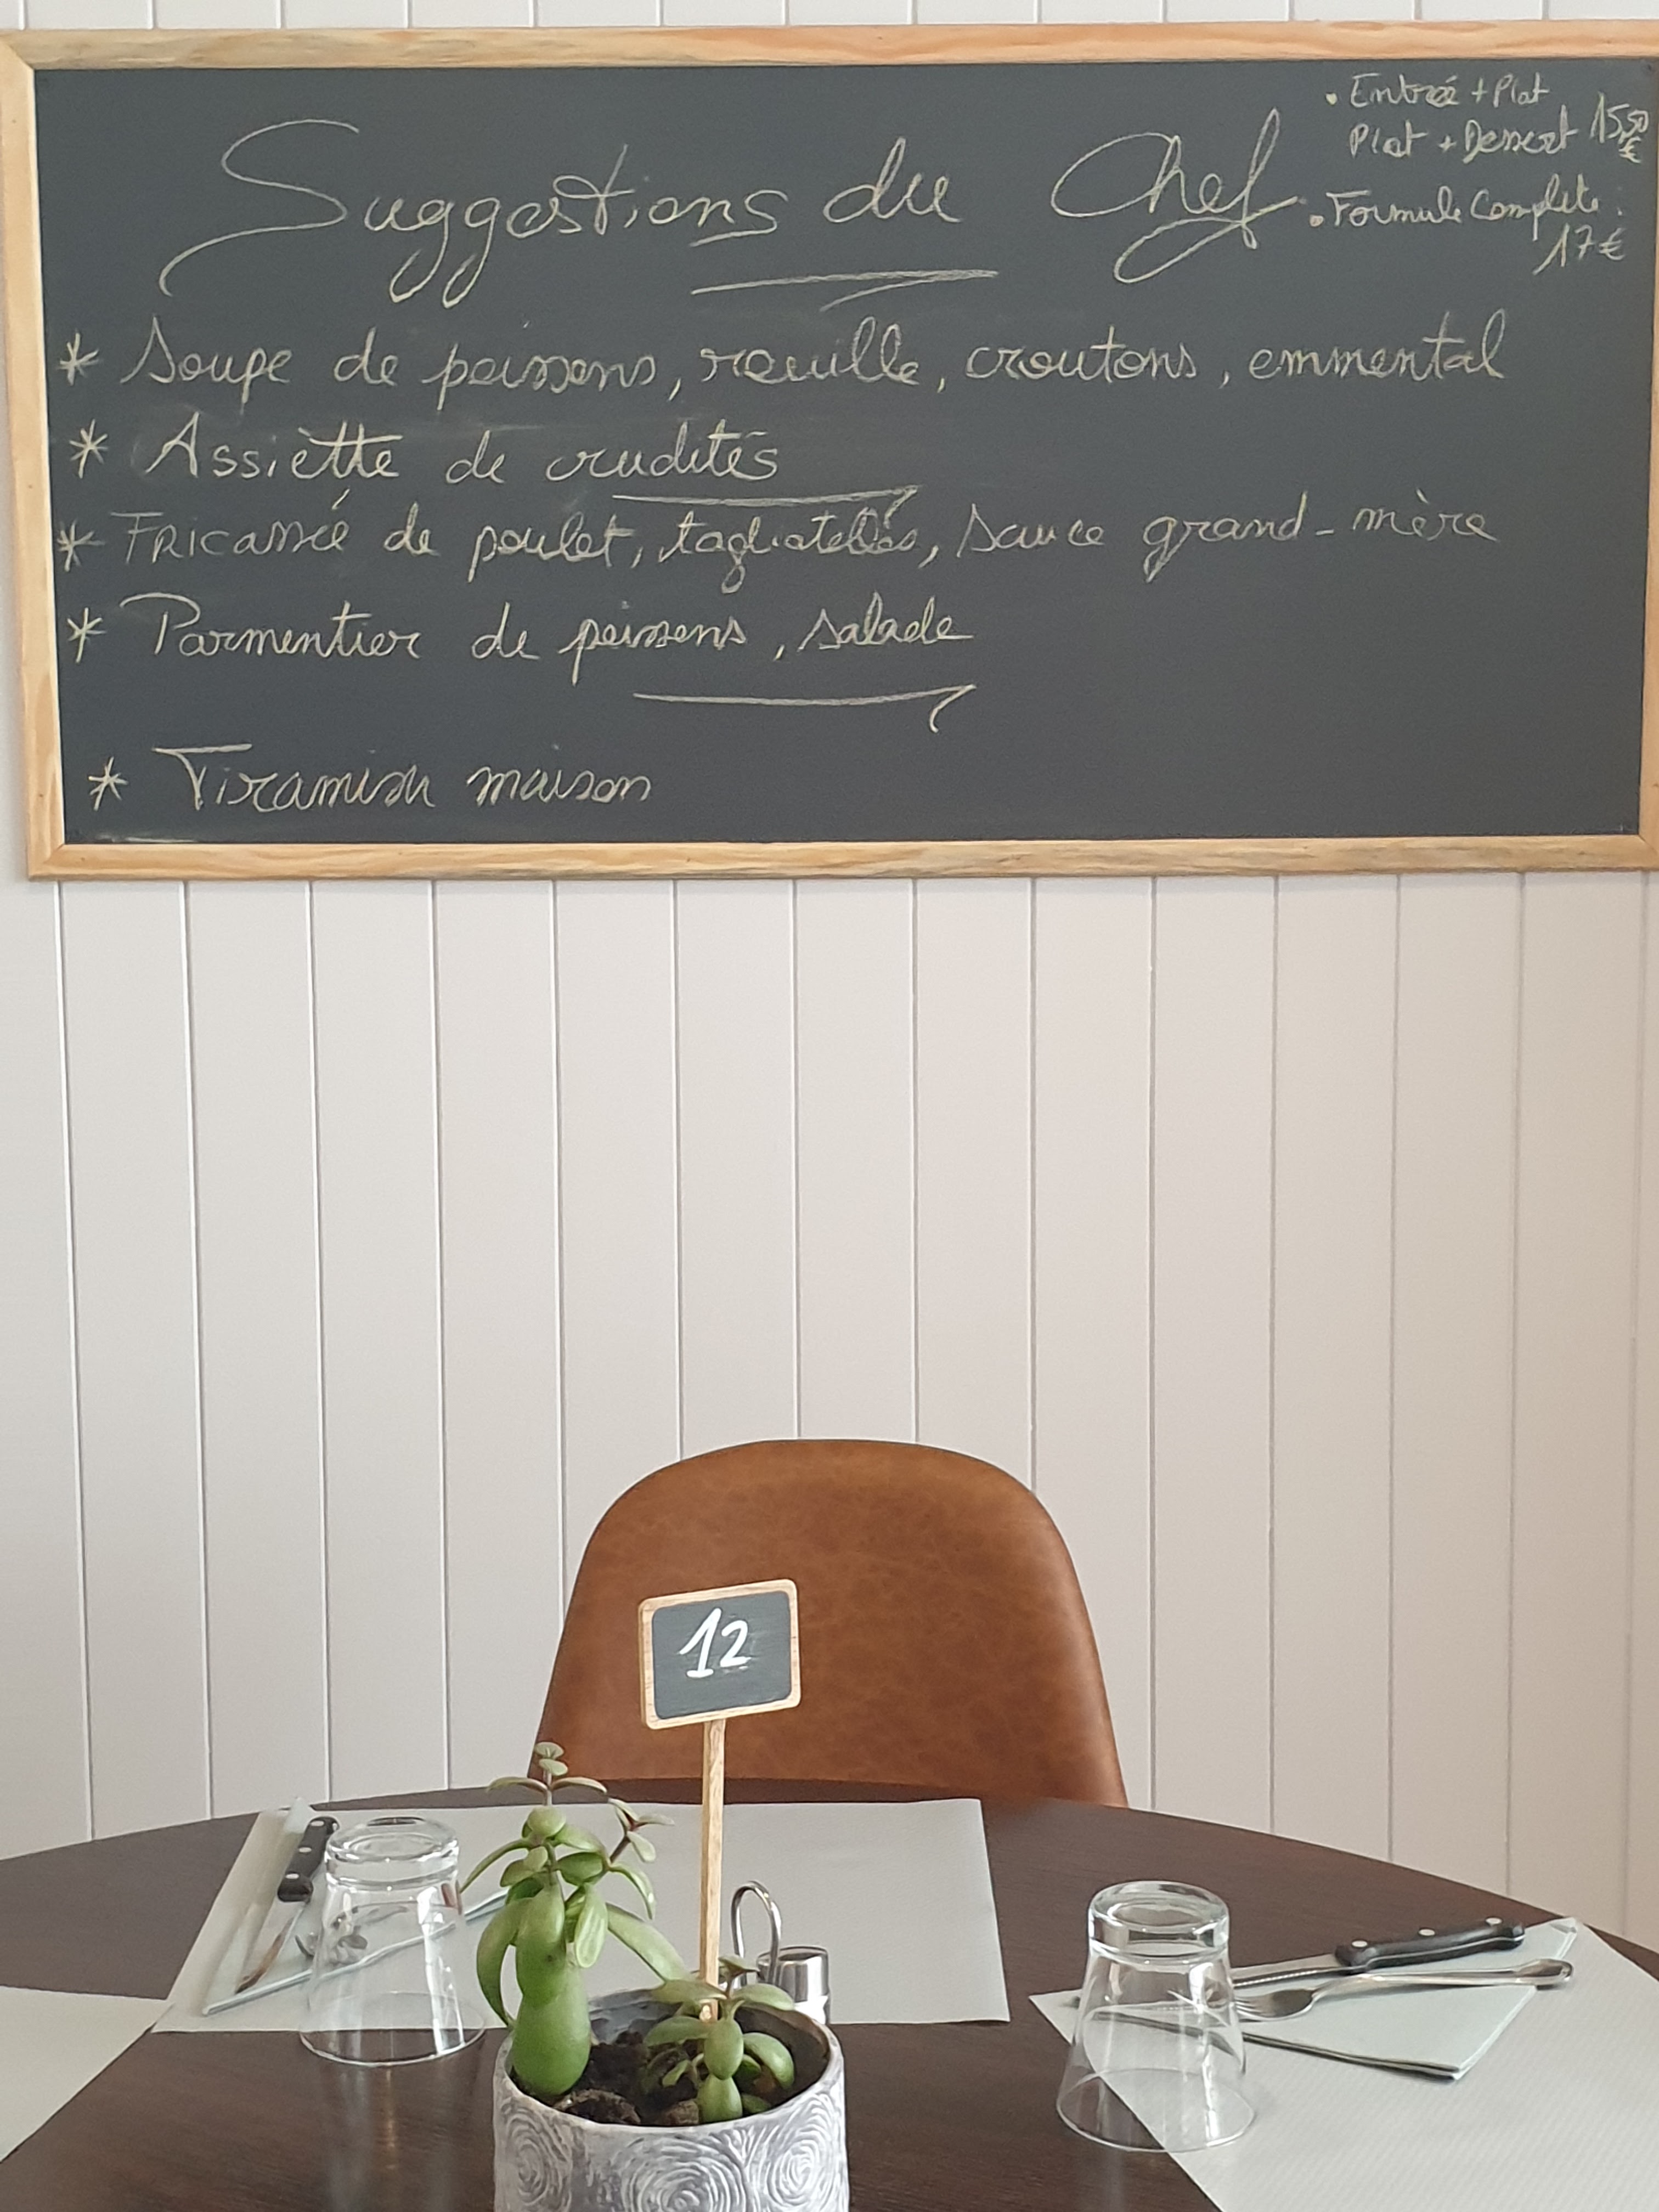 Suggestions du Chef
• Entrée + Plat
Plat + Dessert 15,50 €
• Formule Complète :
17 €
* Soupe de poissons, rouille, croutons, emmental
* Assiètte de crudités
* Fricassée de poulet, tagliatelles, sauce grand-mère
* Parmentier de poissons, salade
* Tiramisu maison
12